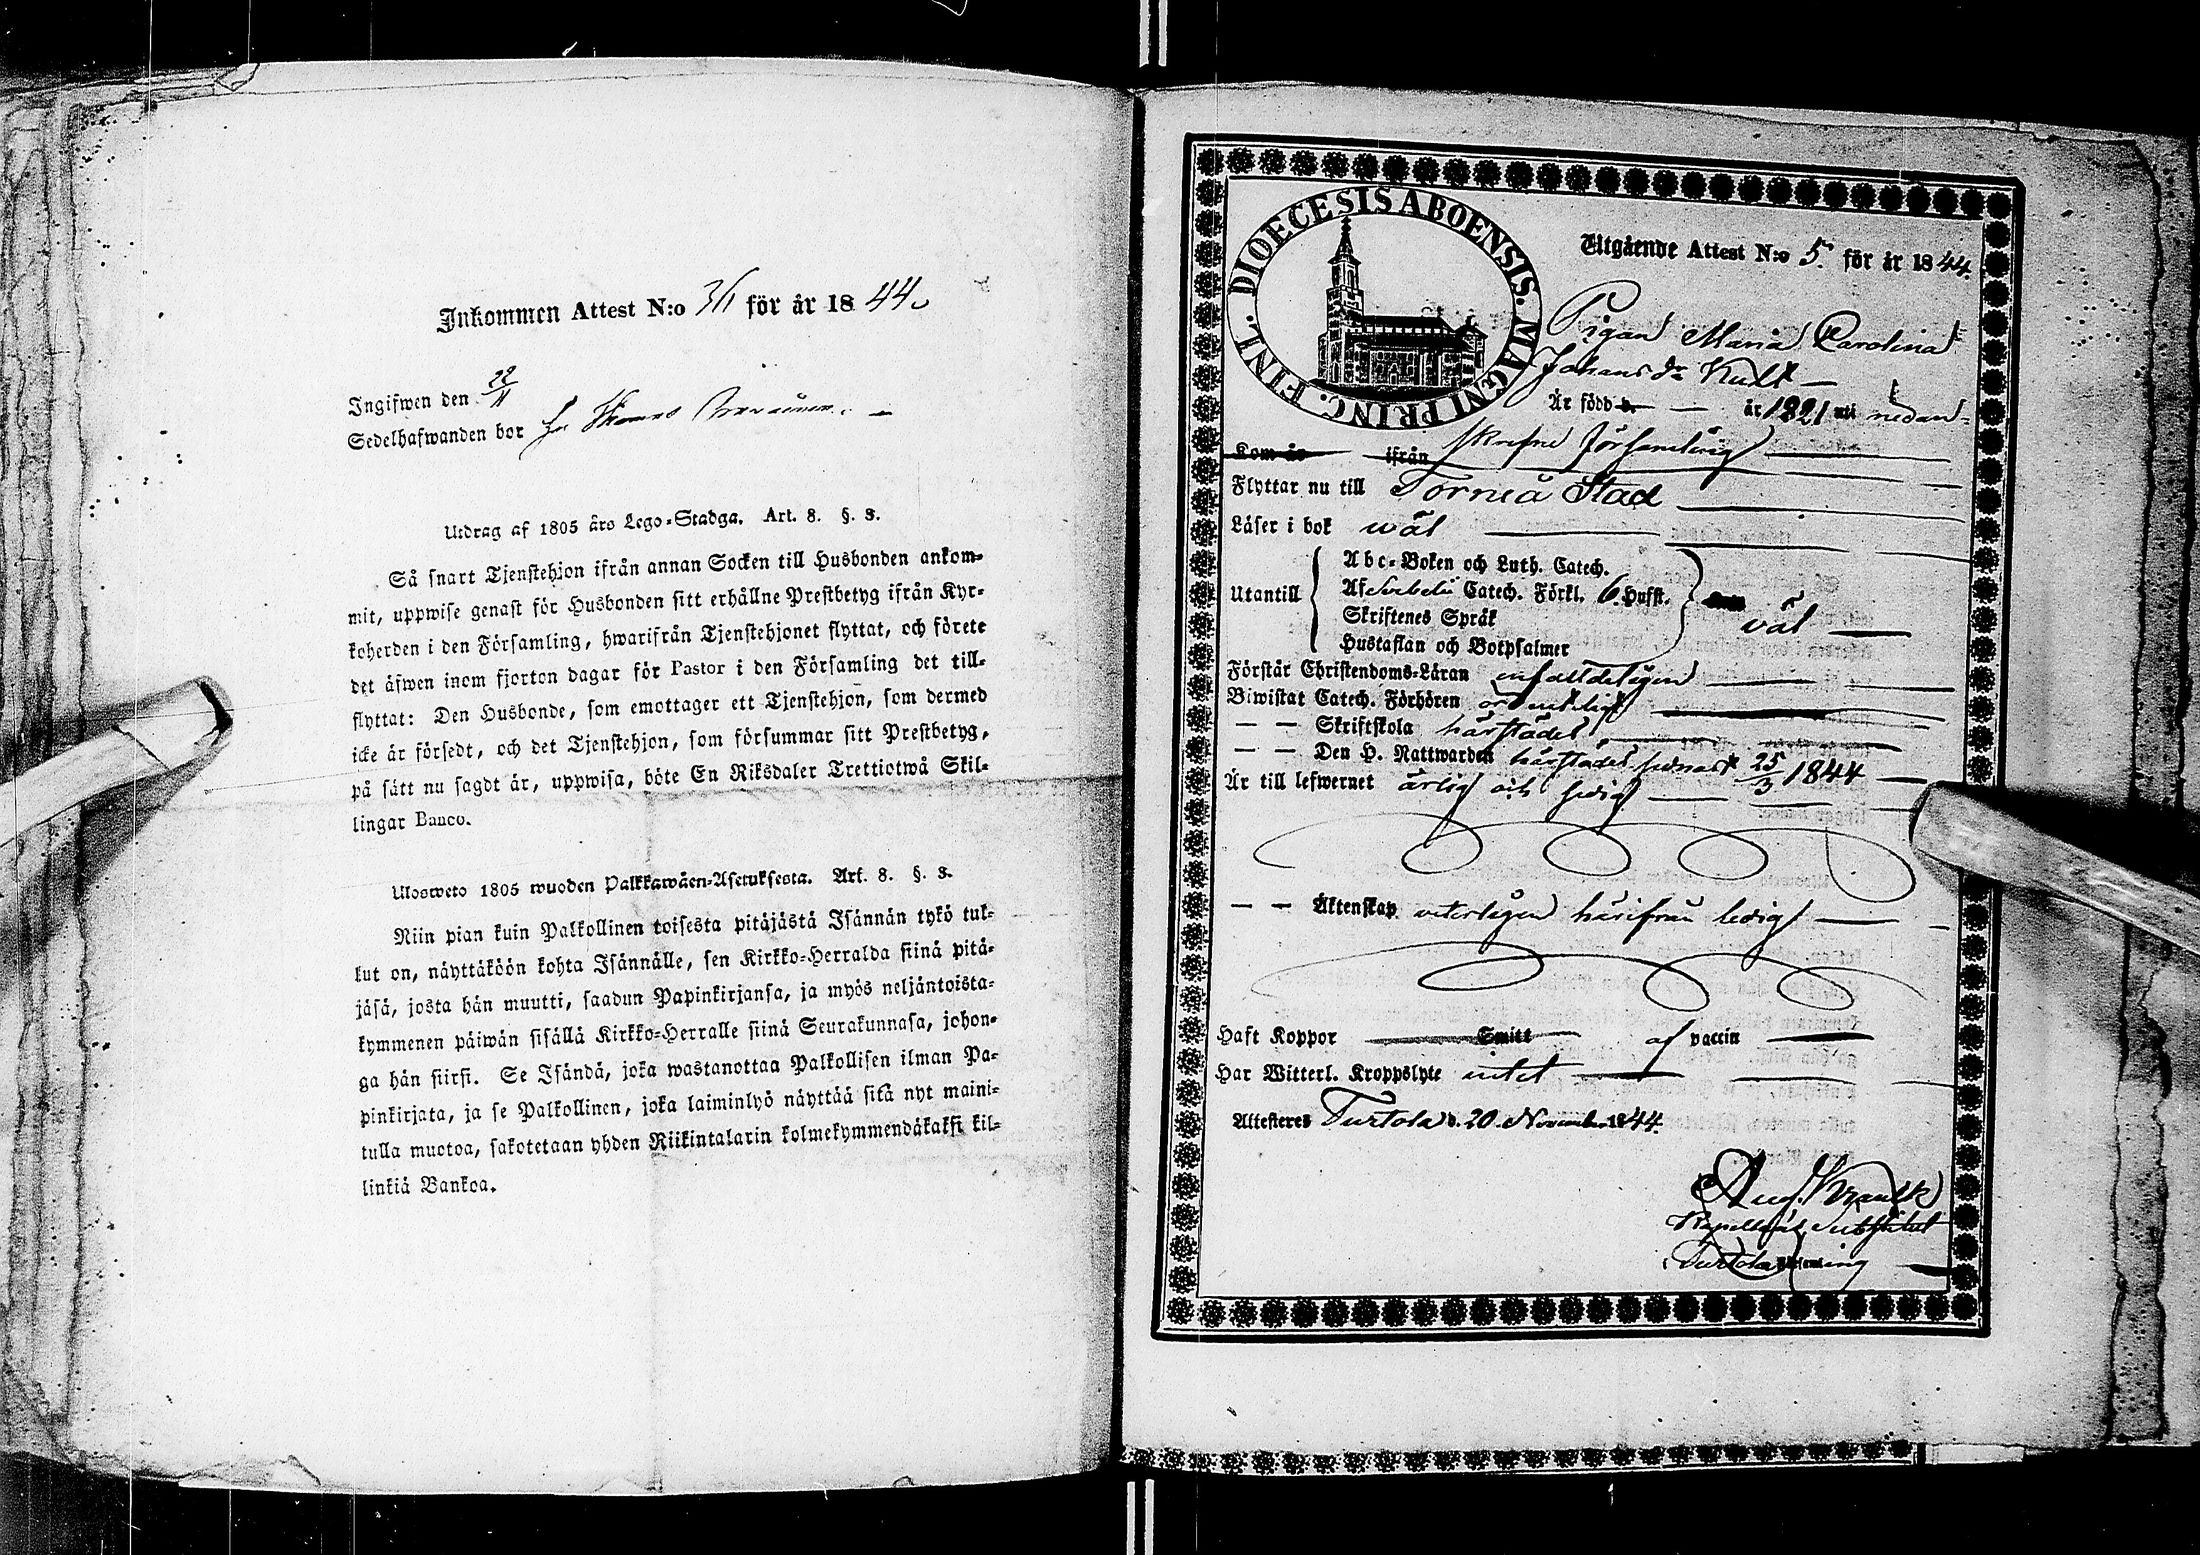 Inkommen Attest N:o 3/1 för år 1844.
Ingifwen den 22/11
Sedelhafwanden bor
Utdrag af 1805 års Lego-Stadga. Art. 8. §. 8.
Så snart Tjenstehjon ifrån annan Socken till Husbonden ankom-
mit, uppwise genast för Husbonden sitt erhållne Prestbetyg ifrån Kyr-
koherden i den Församling, hwarifrån Tjenstehjonet flyttat, och förete
det äfwen inom fjorton dagar för Pastor i den Församling det till-
flyttat: Den Husbonde, som emottager ett Tjenstehjon, som dermed
icke är försedt, och det Tjenstehjon, som försummar sitt Prestbetyg,
på sätt nu sagdt är, uppwisa, böte En Riksdaler Trettiotwå Skil-
lingar Banco.
Ulosweto 1805 wuoden Palkkawäen-Asetuksesta. Art. 8. §. 8.
Niin pian kuin Palkollinen toisesta pitäjästä Isännän tykö tul-
lut on, näyttäköön kohta Isännälle, sen Kirkko-Herralda siinä pitä-
jäsä, josta hän muutti, saadun Papinkirjansa, ja myös neljäntoista-
kymmenen päiwän sisällä Kirkko-Herralle siinä Seurakunnasa, johon-
ga hän siirsi. Se Isändä, joka wastanottaa Palkollisen ilman Pa-
pinkirjata, ja se Palkollinen, joka laiminlyö näyttää sitä nyt maini-
tulla muotoa, sakotetaan yhden Riikintalarin kolmekymmendäkaksi kil-
linkiä Bankoa.
DIOECESIS ABOENSIS. MAGNI PRINC. FINL.
Utgående Attest N:o 5. för år 1844.
Pigan Maria Carolina
Johansdr
Är född d. — år 1821 uti nedan-
Kom år ifrån skrefne församling
Flyttar nu till Torneå Stad
Läser i bok wäl
Utantill
Abc-Boken och Luth. Catech.
Af Svebelii Catech. Förkl. 6. Hufst.
Skriftenes Språk
Hustaflan och Botpsalmer
wäl
Förstår Christendoms-Läran enfaldeligen
Biwistat Catech. Förhören ordentligt
— — Skriftskola härstädes
— — Den H. Nattwarden härstädes senast 25/3 1844
Är till lefwernet ärlig och sedig
— — Äktenskap veterligen härifrån ledig
Haft Koppor Smitt af vaccin
Har Witterl. Kroppslyte intet
Attesteres Turtola d. 20 November 1844.
Aug.
Kapellans Substitut
Turtola